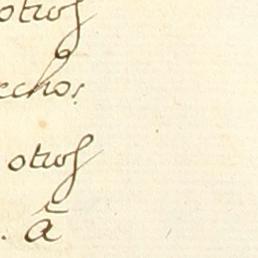 otros
echos
otros
. ã